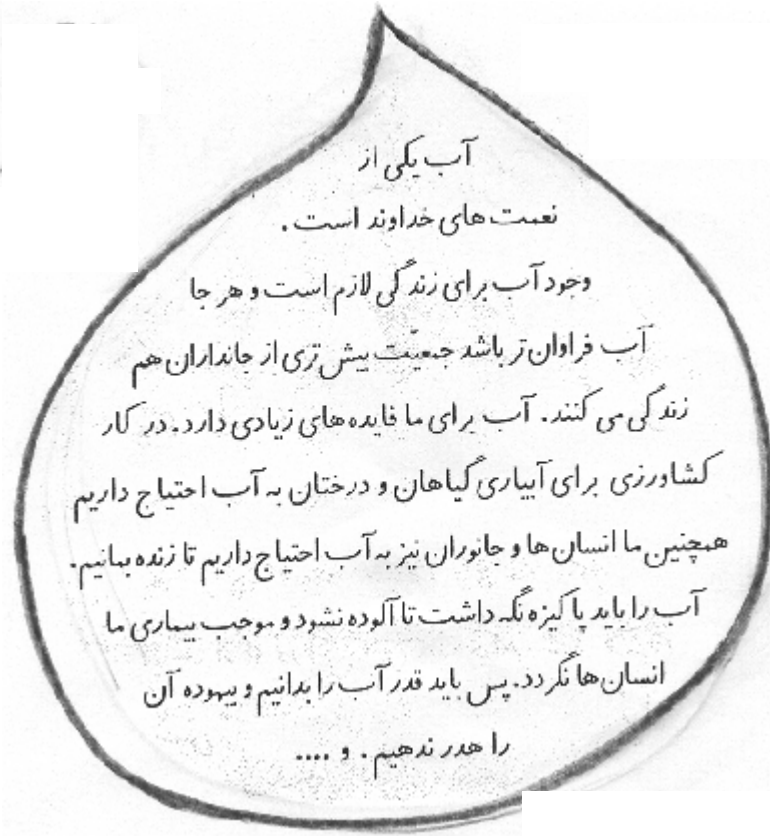 آب یکی از
نعمت های خداوند است.
وجود آب برای زندگی لازم است و هر جا
آب فراوان تر باشد جمعیّت بیش تری از جانداران هم
زندگی می کنند. آب برای ما فایده های زیادی دارد. در کار
کشاورزی برای آبیاری گیاهان و درختان به آب احتیاج داریم
همچنین ما انسان ها و جانوران نیز به آب احتیاج داریم تا زنده بمانیم.
آب را باید پاکیزه نگه داشت تا آلوده نشود و موجب بیماری ما
انسان ها نگردد. پس باید قدر آب را بدانیم و بیهوده آن
را هدر ندهیم. و ....